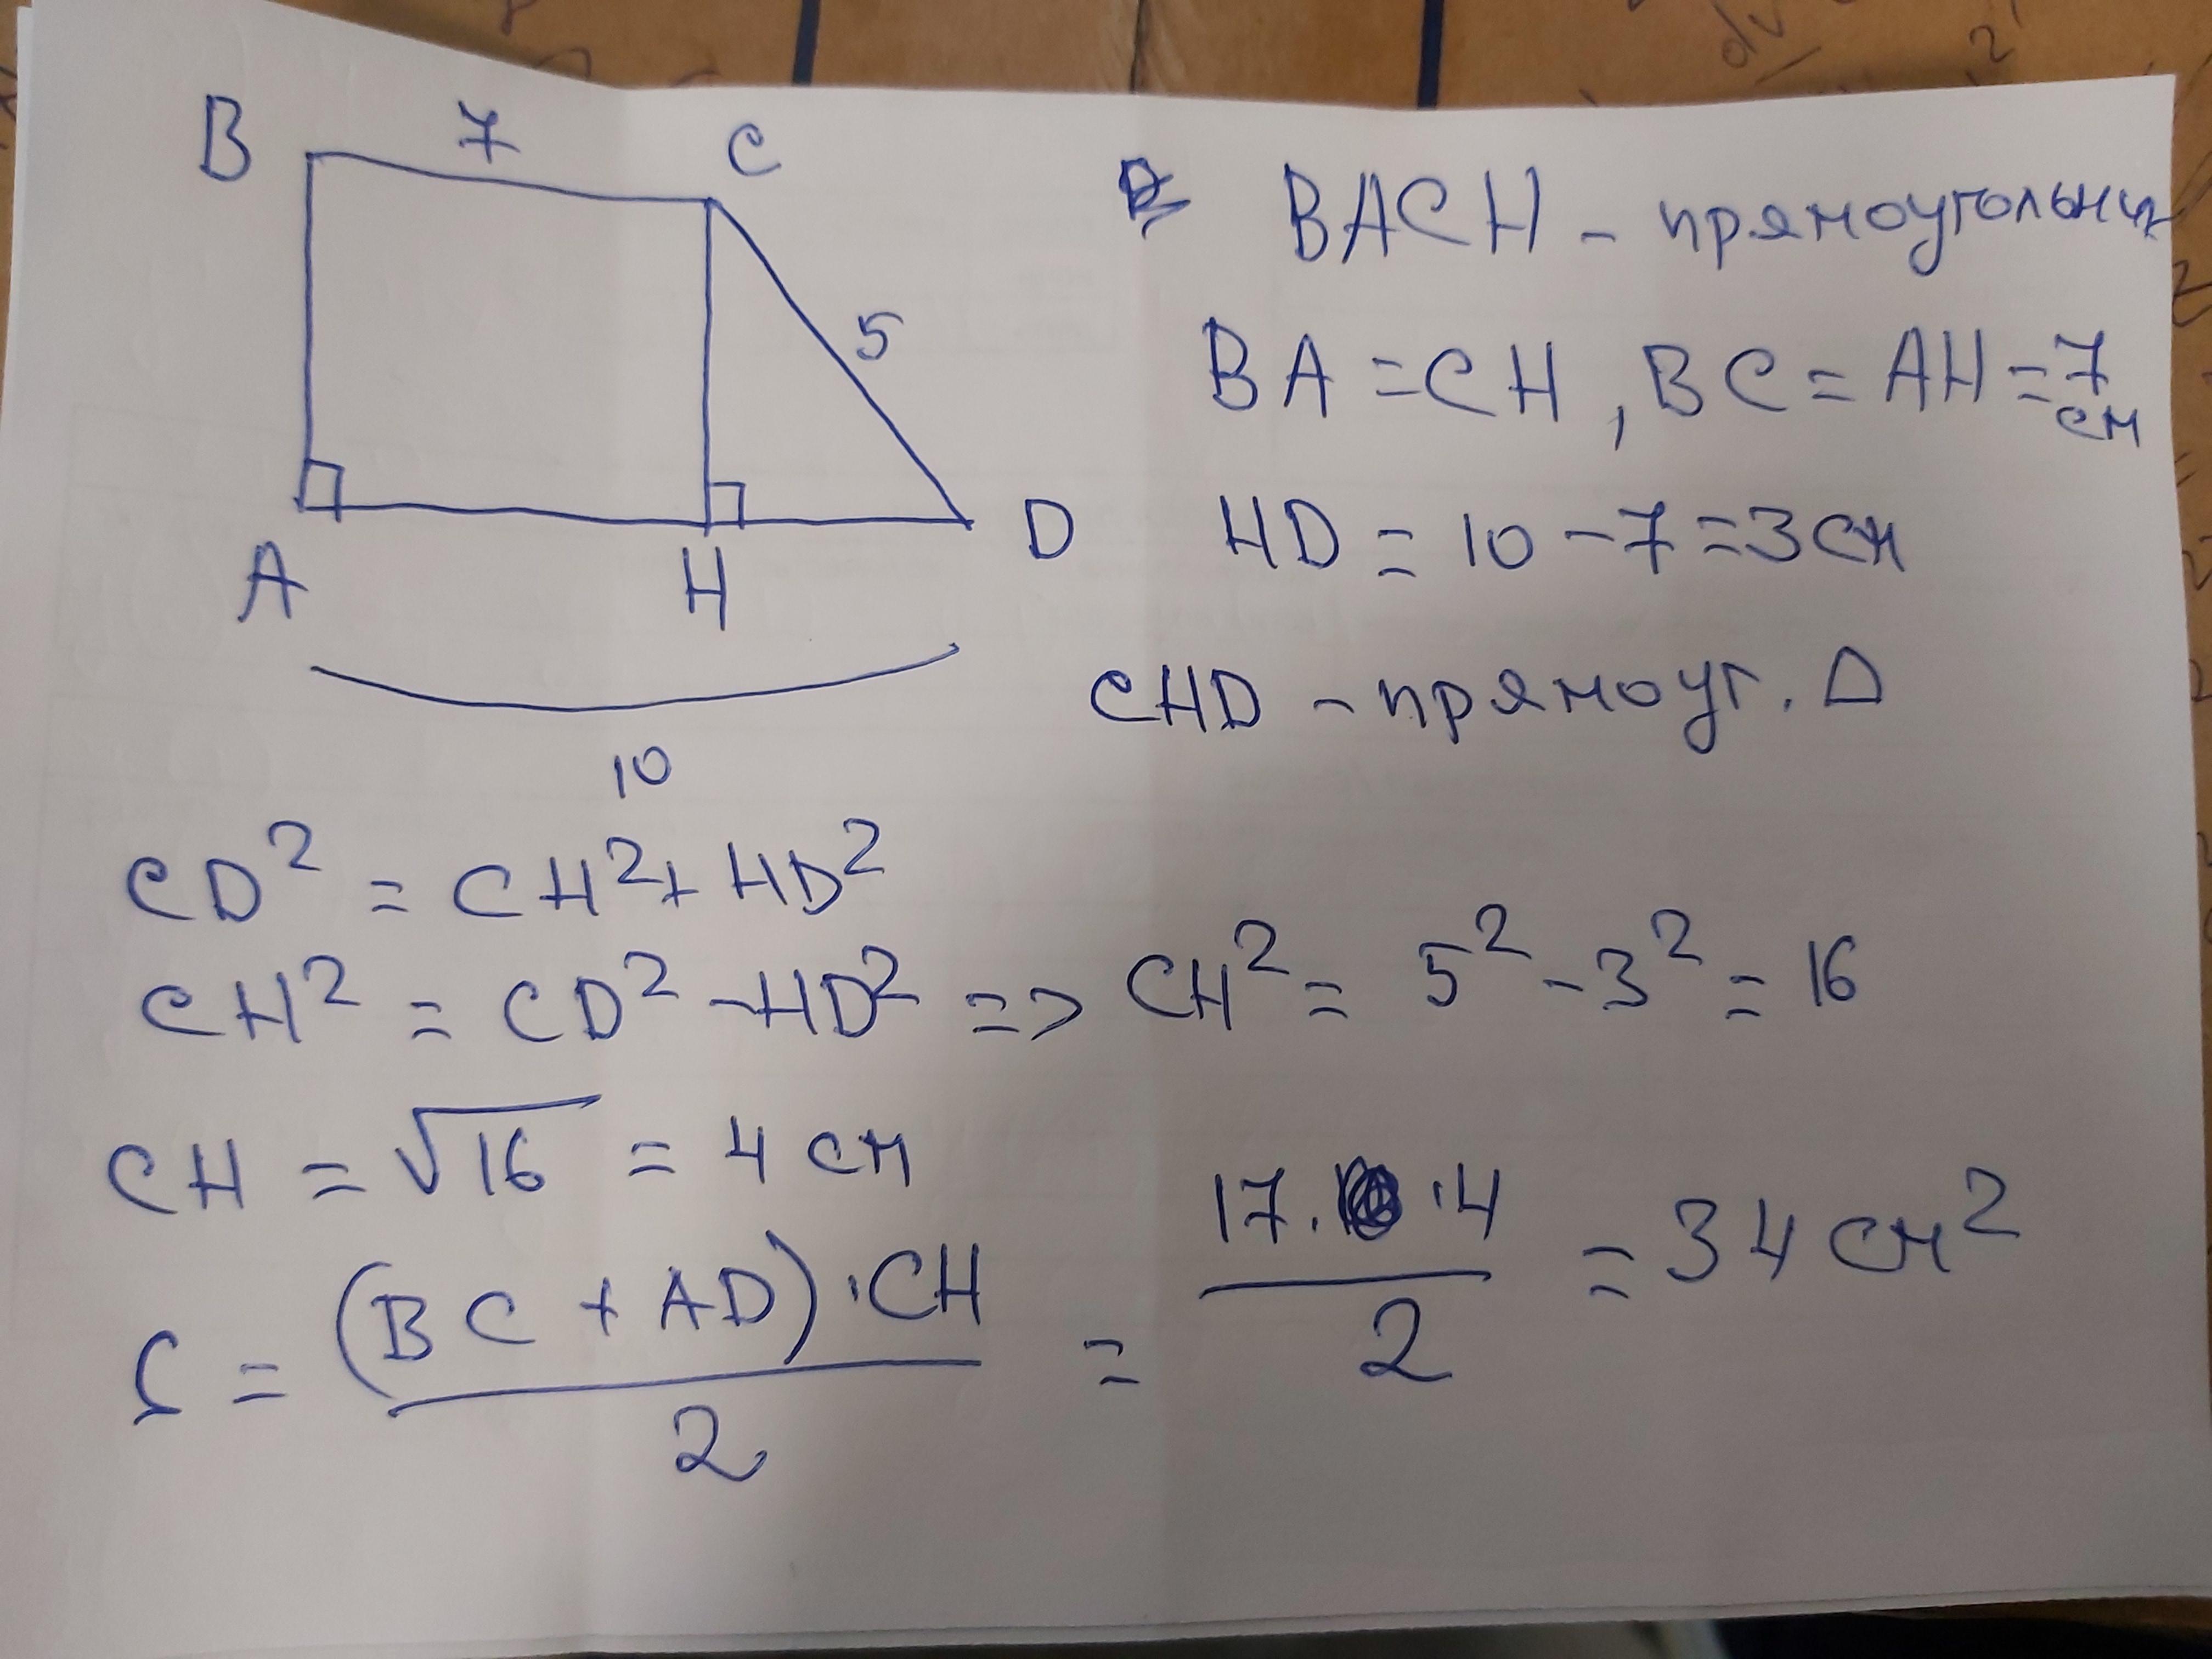 B 7 C
5
A H D
10
BACH - прямоугольник
BA = CH, BC = AH = 7 см
HD = 10 - 7 = 3 см
CHD - прямоуг. Δ
CD² = CH² + HD²
CH² = CD² - HD² => CH² = 5² - 3² = 16
CH = √16 = 4 см
S = (BC + AD) · CH / 2 = 17 · · 4 / 2 = 34 см²